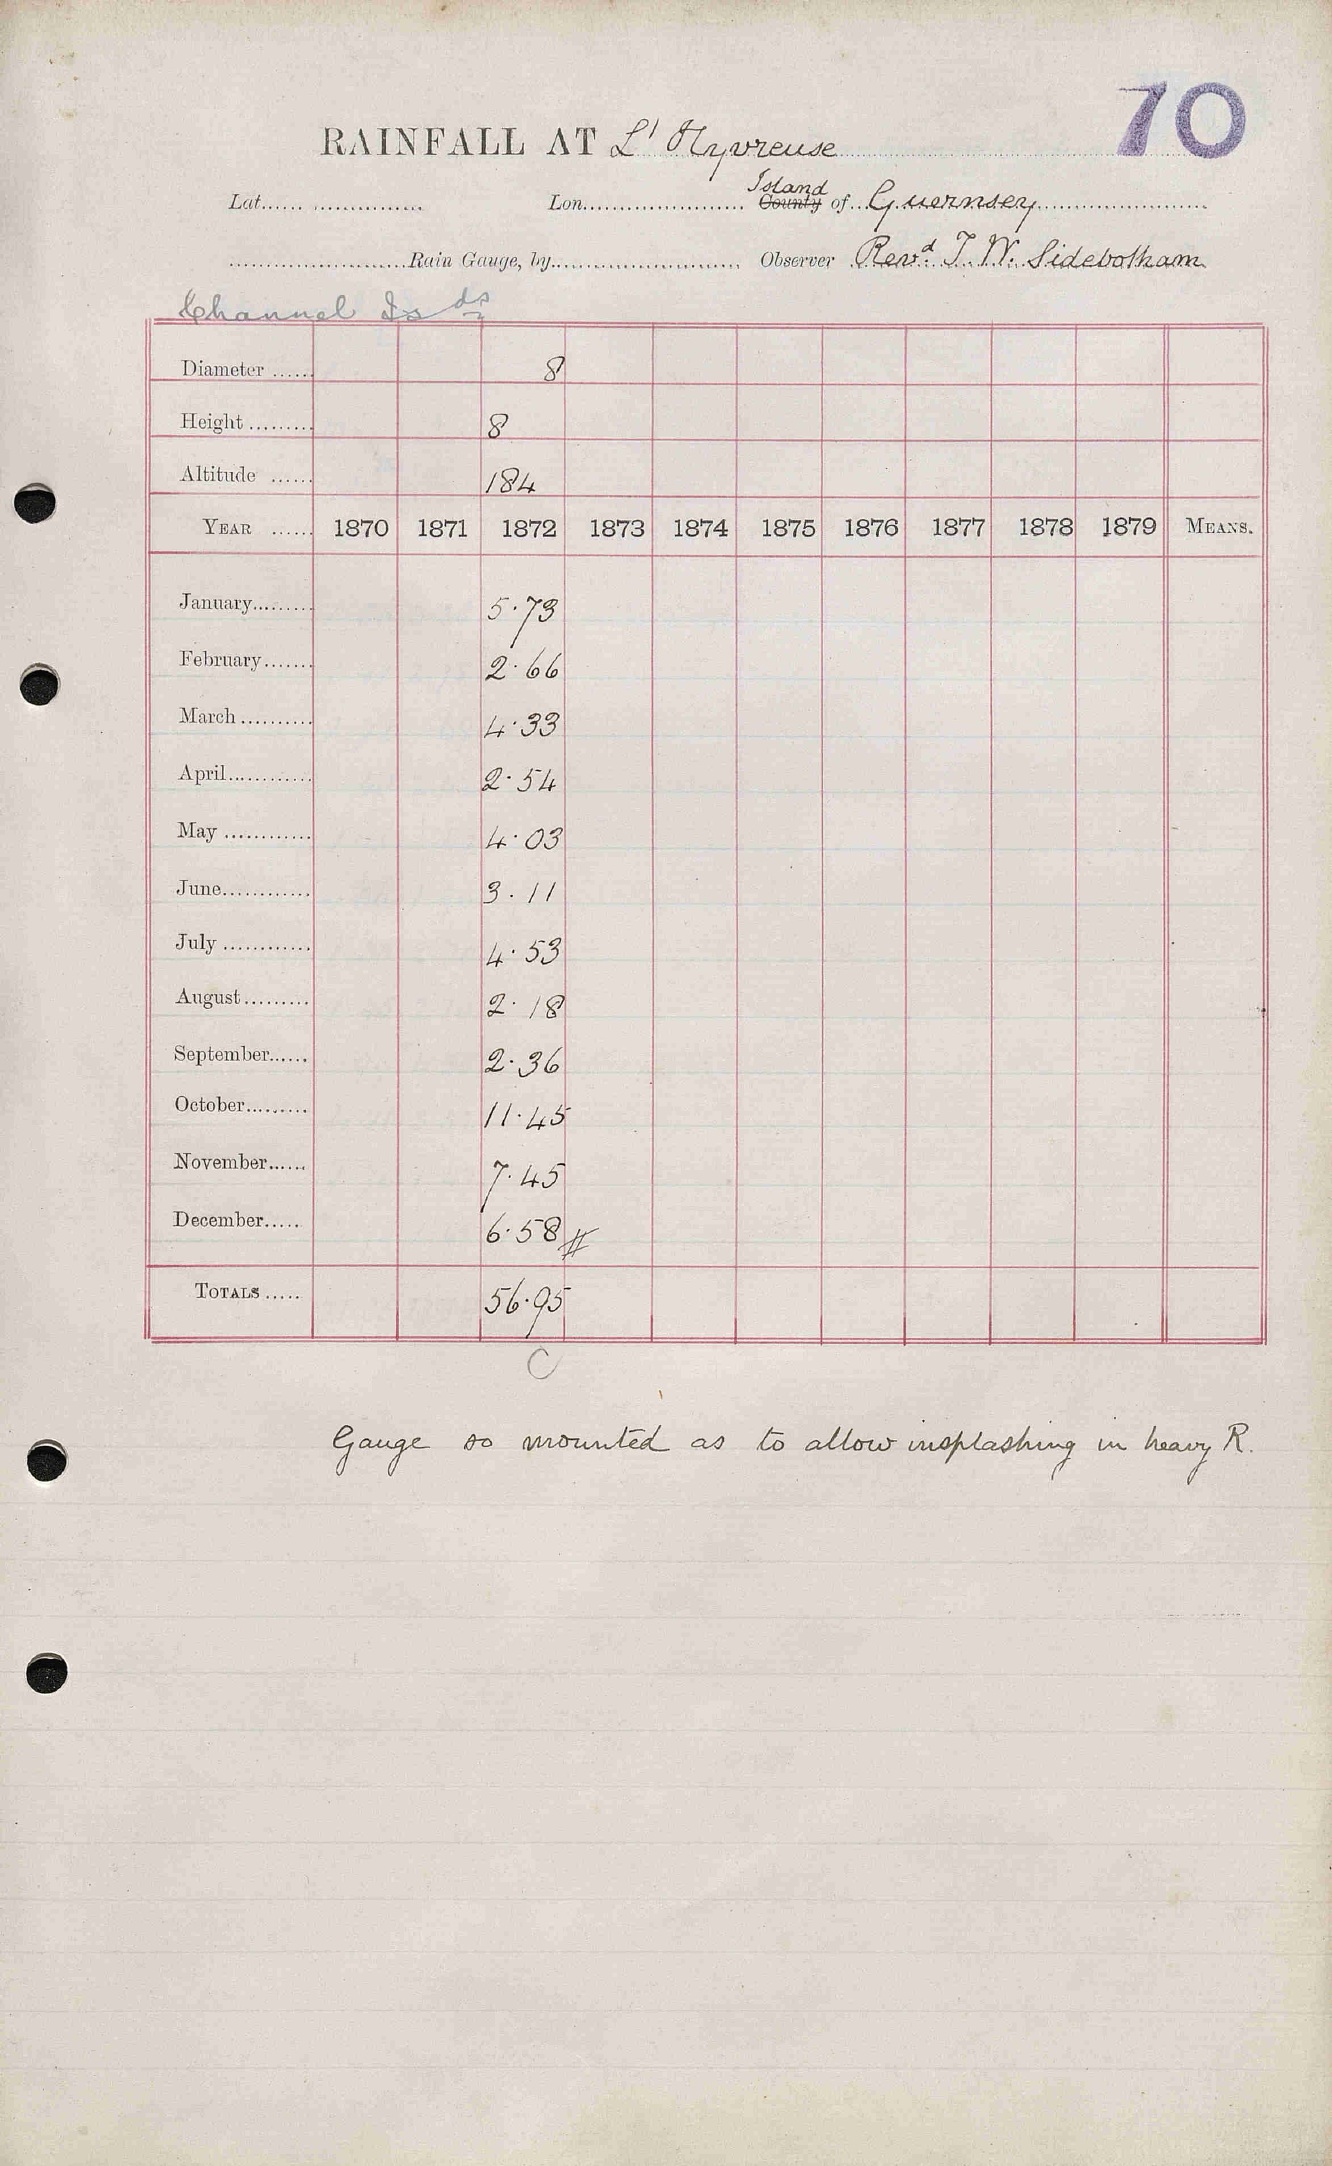 70
RAINFALL AT L' Hyvreuse
Lat. Lon. Island County of Guernsey
Rain Gauge, by Observer Revd. T. W. Sidebotham
Channel Isds
Diameter 8
Height 8
Altitude 184
YEAR 1870 1871 1872 1873 1874 1875 1876 1877 1878 1879 MEANS.
January 5.73
February 2.66
March 4.33
April 2.54
May 4.03
June 3.11
July 4.53
August 2.18
September 2.36
October 11.45
November 7.45
December 6.58 #
TOTALS 56.95
C
Gauge so mounted as to allow insplashing in heavy R.